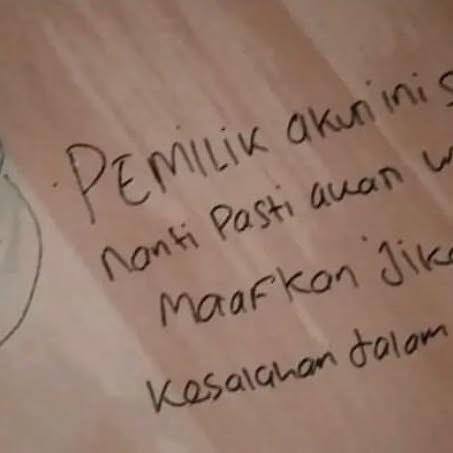 PEMILIK akun ini s
nanti Pasti akan w
Maafkan Jika
Kesalahan dalam